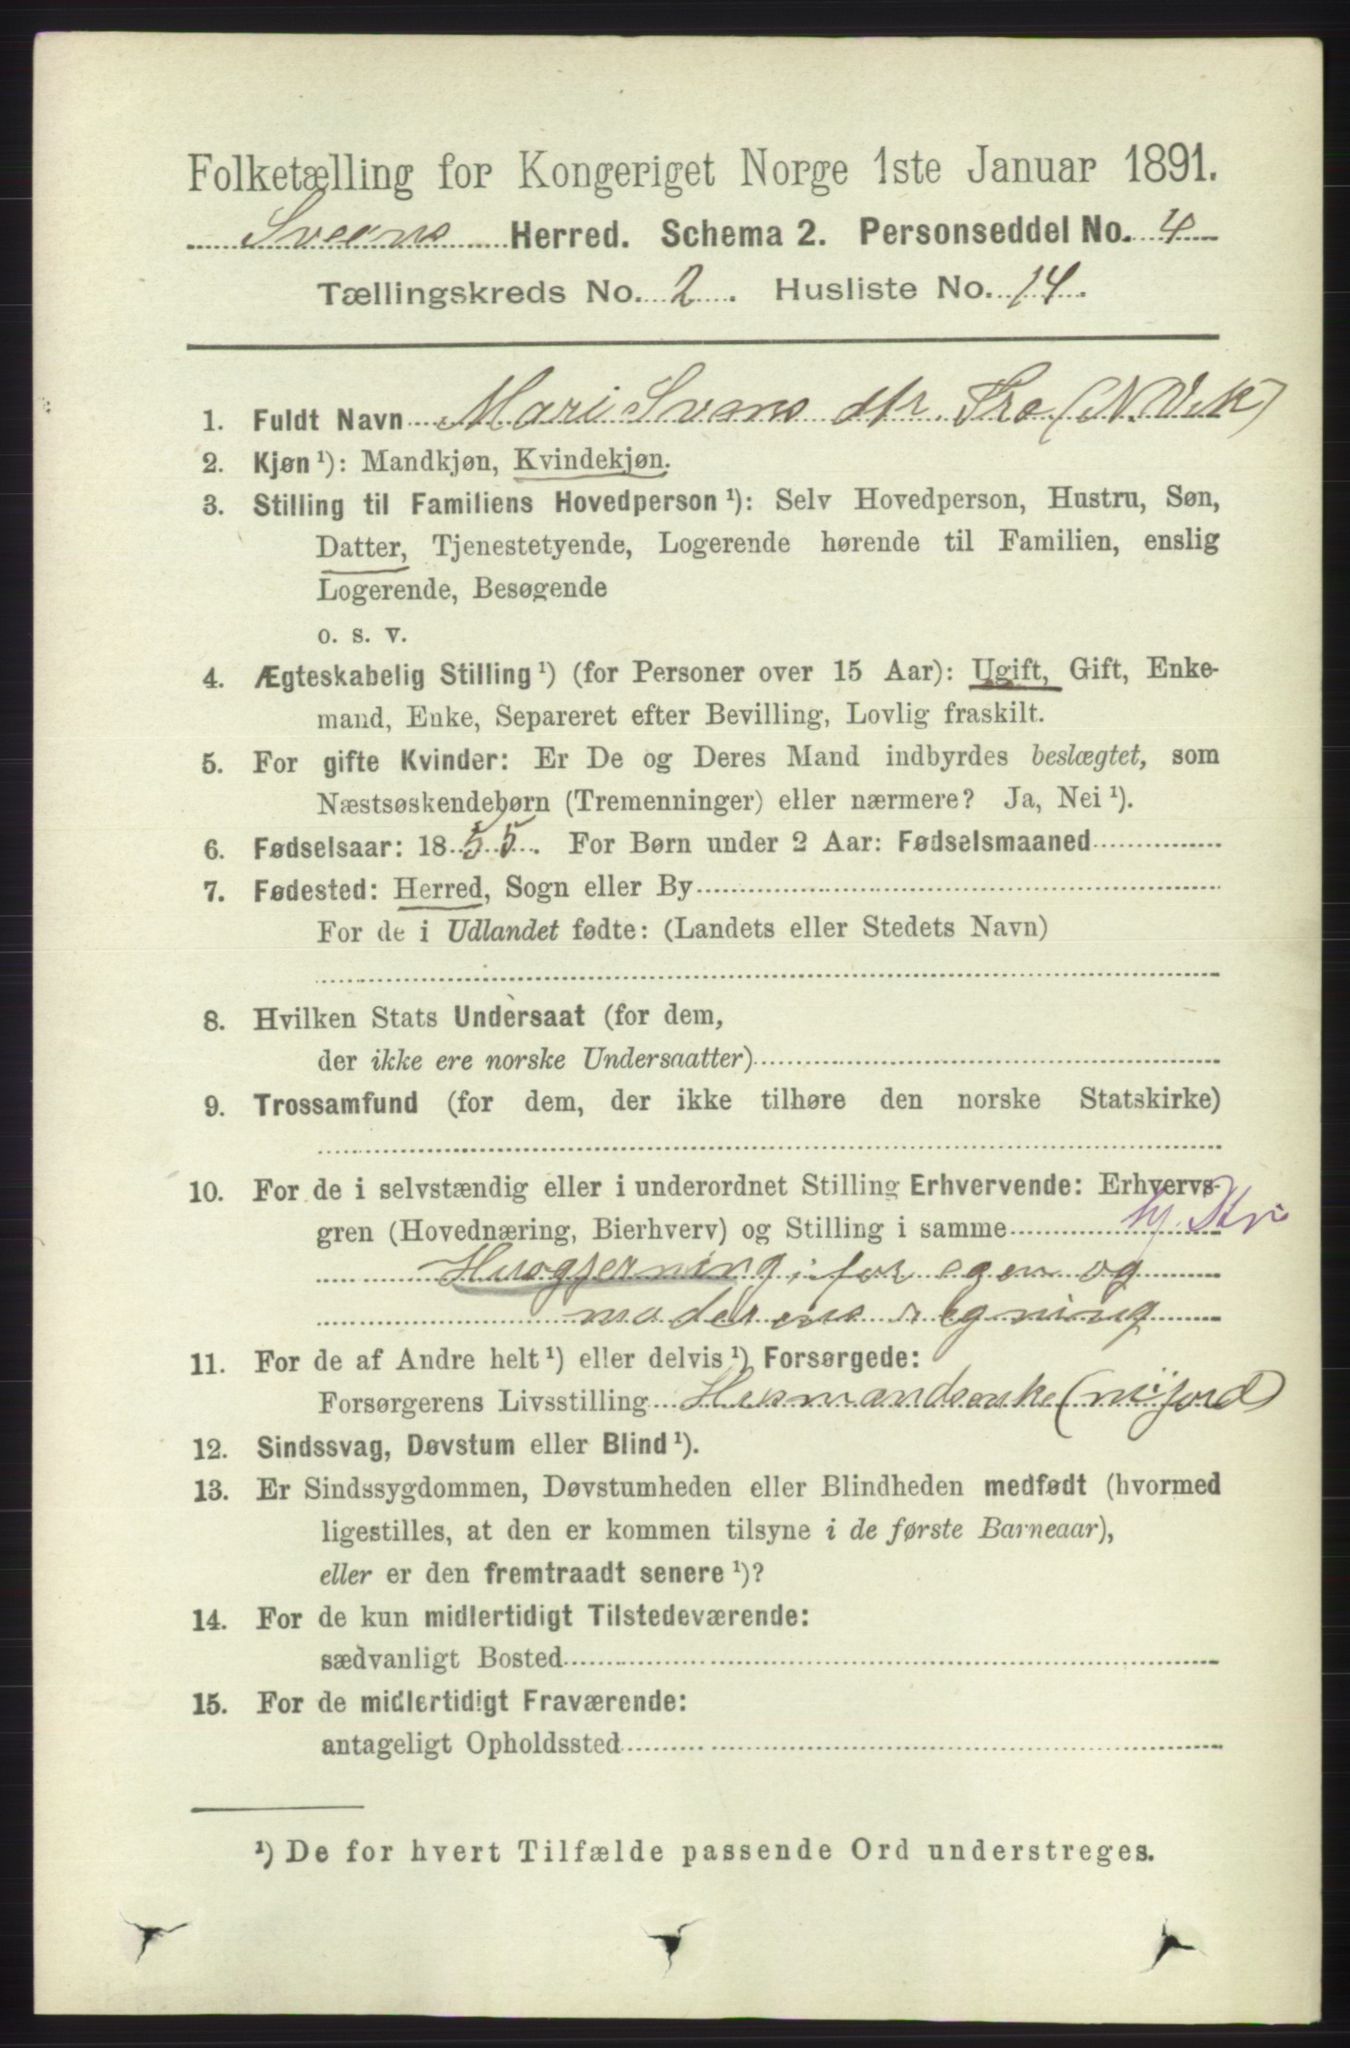 Folketælling for Kongeriget Norge 1ste Januar 1891.
Sveens Herred. Schema 2. Personseddel No. 4
Tællingskreds No. 2. Husliste No. 14.
1. Fuldt Navn Mari Svens dtr. Tro (N.V.k)
2. Kjøn ¹): Mandkjøn, Kvindekjøn.
3. Stilling til Familiens Hovedperson ¹): Selv Hovedperson, Hustru, Søn,
Datter, Tjenestetyende, Logerende hørende til Familien, enslig
Logerende, Besøgende
o. s. v.
4. Ægteskabelig Stilling ¹) (for Personer over 15 Aar): Ugift, Gift, Enke-
mand, Enke, Separeret efter Bevilling, Lovlig fraskilt.
5. For gifte Kvinder: Er De og Deres Mand indbyrdes beslægtet, som
Næstsøskendebørn (Tremenninger) eller nærmere? Ja, Nei ¹).
6. Fødselsaar: 1855. For Børn under 2 Aar: Fødselsmaaned
7. Fødested: Herred, Sogn eller By
For de i Udlandet fødte: (Landets eller Stedets Navn)
8. Hvilken Stats Undersaat (for dem,
der ikke ere norske Undersaatter)
9. Trossamfund (for dem, der ikke tilhøre den norske Statskirke)
10. For de i selvstændig eller i underordnet Stilling Erhvervende: Erhvervs-
gren (Hovednæring, Bierhverv) og Stilling i samme
Husgjerning, for egen og
moderens regning
11. For de af Andre helt ¹) eller delvis ¹) Forsørgede:
Forsørgerens Livsstilling Husmandsenke (m jord)
12. Sindssvag, Døvstum eller Blind ¹).
13. Er Sindssygdommen, Døvstumheden eller Blindheden medfødt (hvormed
ligestilles, at den er kommen tilsyne i de første Barneaar),
eller er den fremtraadt senere ¹)?
14. For de kun midlertidigt Tilstedeværende:
sædvanligt Bosted
15. For de midlertidigt Fraværende:
antageligt Opholdssted
¹) De for hvert Tilfælde passende Ord understreges.